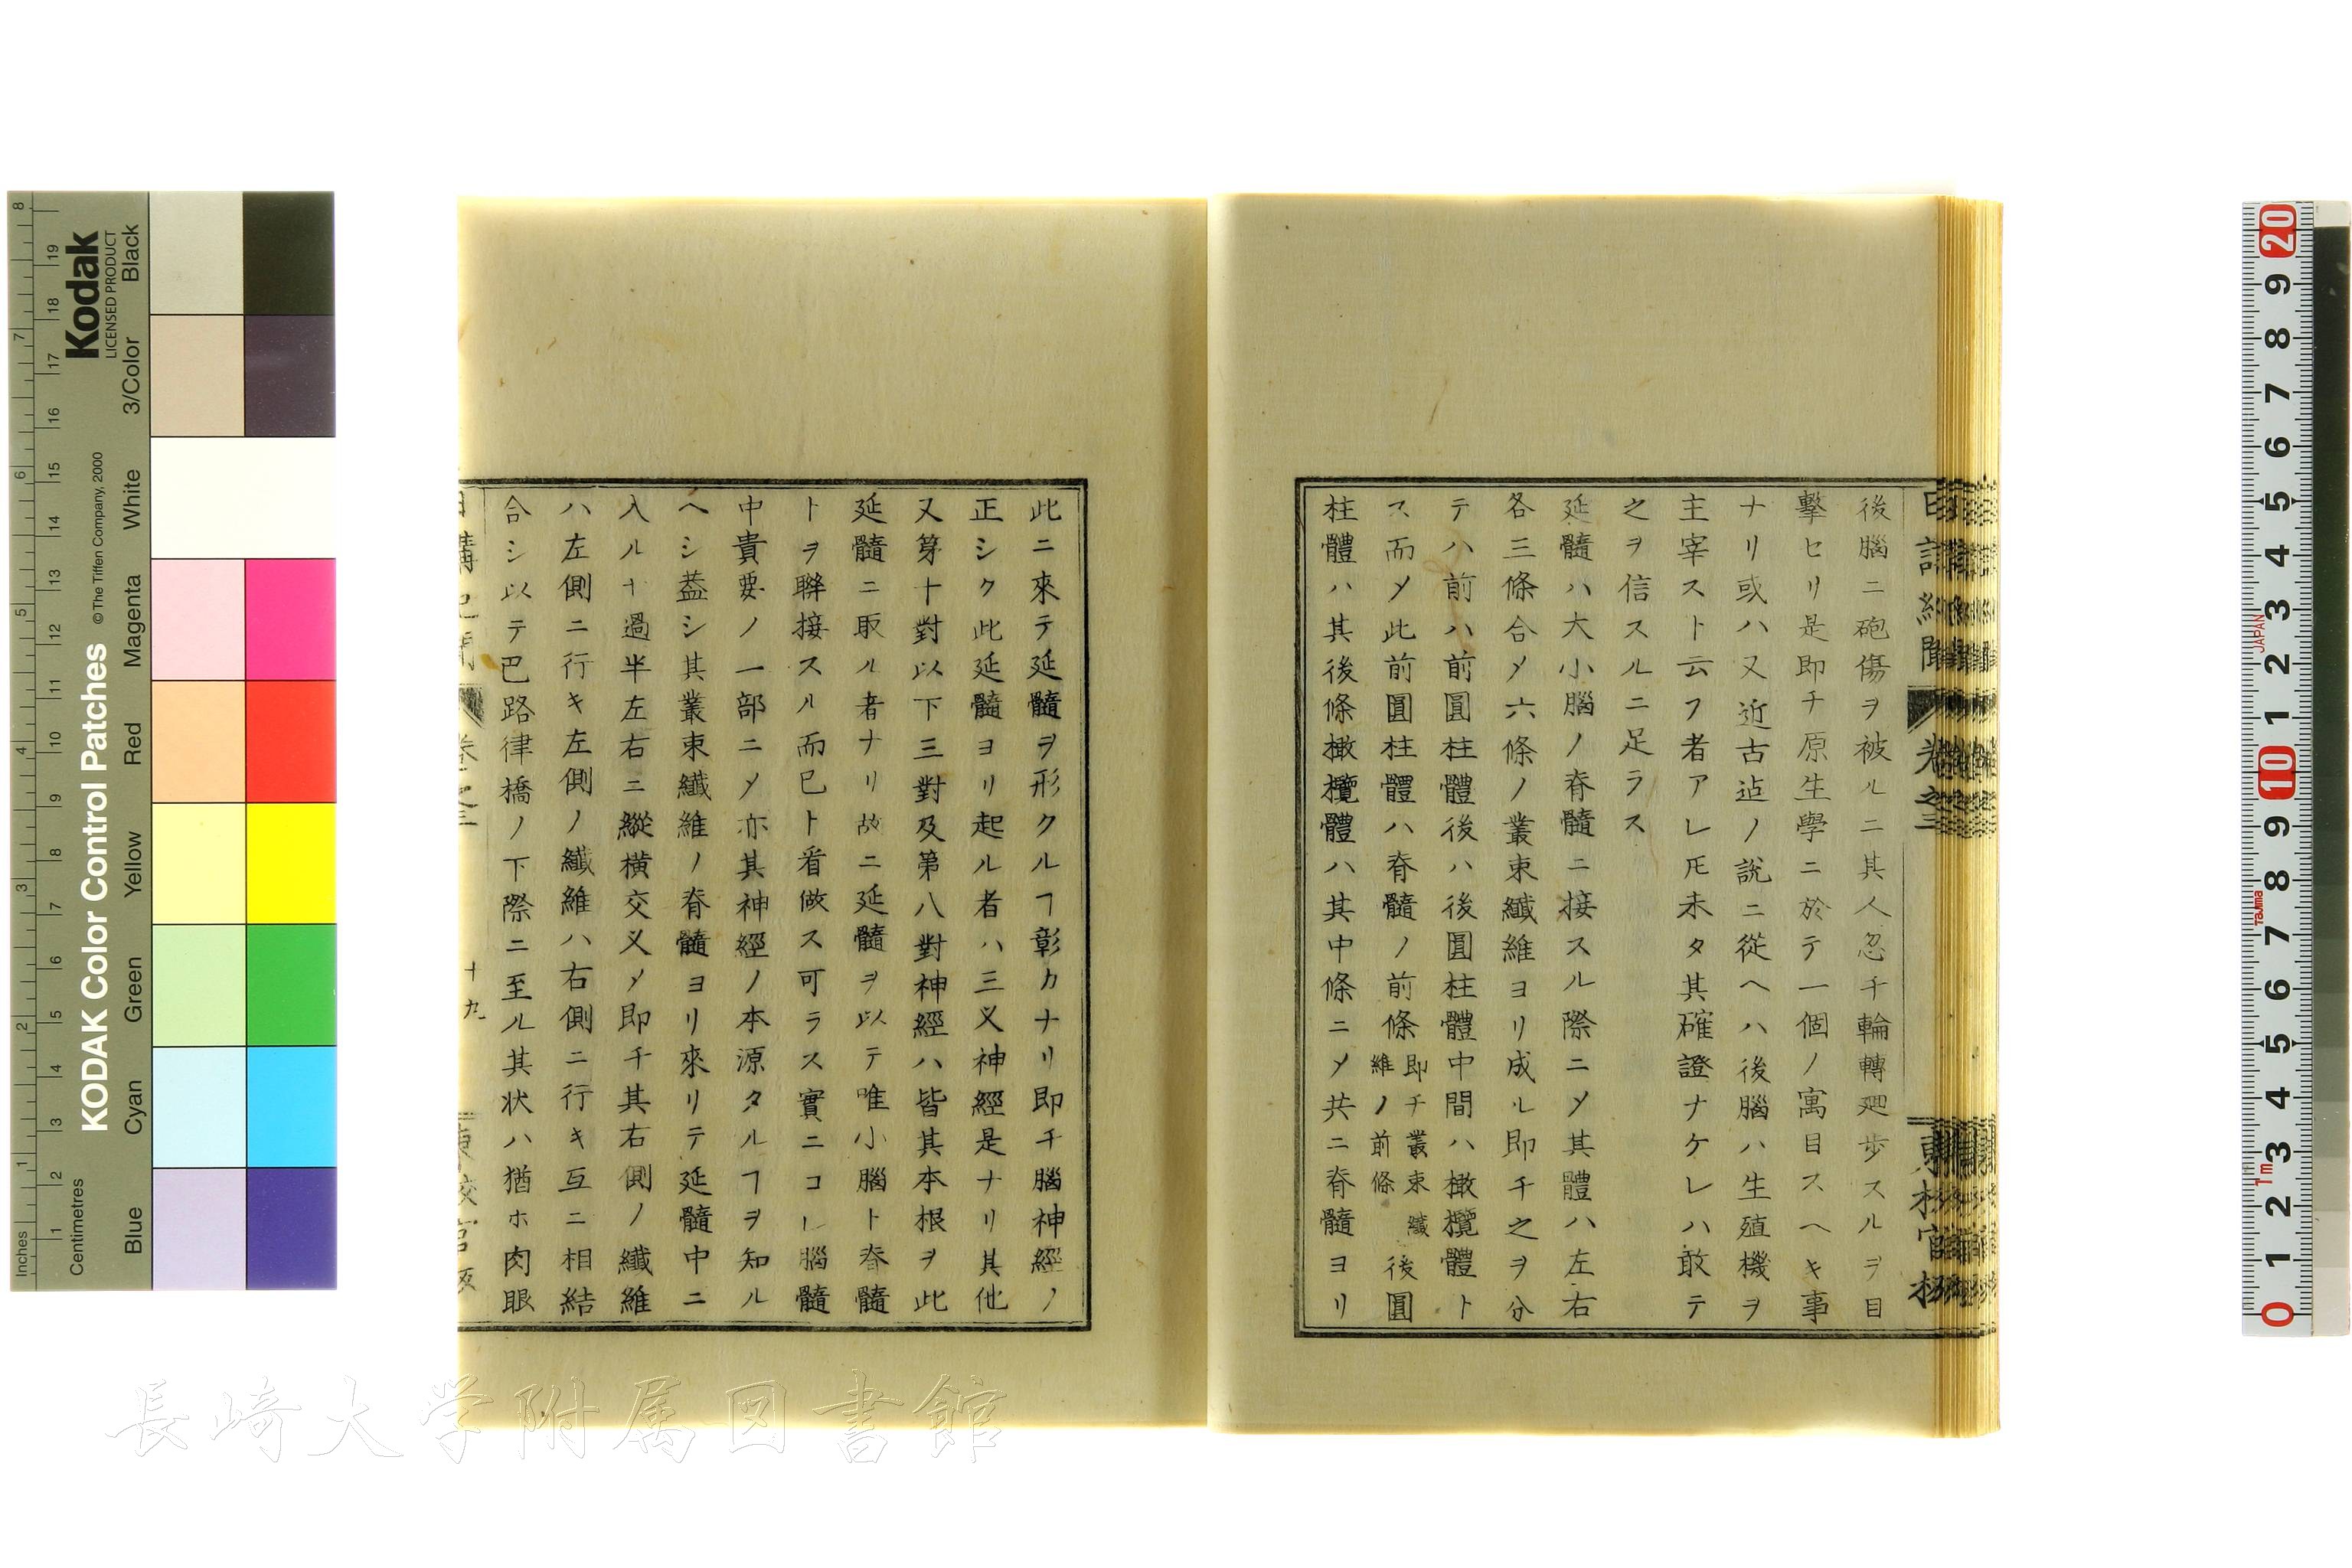 後腦ニ砲傷ヲ被ルニ其人忽チ輪轉𢌞歩スルヲ目
擊セリ是即チ原生學ニ於テ一個ノ寓目スヘキ事
ナリ或ハ又近古迠ノ說ニ從ヘハ後腦ハ生殖機ヲ
主宰スト云フ者アレ𪜈未タ其確證ナケレハ敢テ
之ヲ信スルニ足ラス
延髓ハ大小腦ノ脊髓ニ接スル際ニ〆其體ハ左右
各三條合〆六條ノ叢束纎維ヨリ成ル即チ之ヲ分
テハ前ハ前圓柱體後ハ後圓柱體中間ハ橄欖體ト
ス而〆此前圓柱體ハ脊髓ノ前條即チ叢束纎維ノ前條後圓
柱體ハ其後條橄欖體ハ其中條ニ〆共ニ脊髓ヨリ
卷之三
此ニ來テ延髓ヲ形クルヿ彰カナリ即チ腦神經ノ
正シク此延髓ヨリ起ル者ハ三叉神經是ナリ其他
又第十對以下三對及第八對神經ハ皆其本根ヲ此
延髓ニ取ル者ナリ故ニ延髓ヲ以テ唯小腦ト脊髓
トヲ聯接スル而已ト看做ス可ラス實ニコレ腦髓
中貴要ノ一部ニ〆亦其神經ノ本源タルヿヲ知ル
ヘシ葢シ其叢束纎維ノ脊髓ヨリ來リテ延髓中ニ
入ルヤ過半左右ニ縱橫交叉〆即チ其右側ノ纎維
ハ左側ニ行キ左側ノ纎維ハ右側ニ行キ互ニ相結
合シ以テ巴路律橋ノ下際ニ至ル其状ハ猶ホ肉眼
十九
Kodak
LICENSED PRODUCT
KODAK Color Control Patches
© The Tiffen Company, 2000
Inches
Centimetres
Blue
Cyan
Green
Yellow
Red
Magenta
White
3/Color
Black
JAPAN
Tajima
1m
長崎大学附属図書館